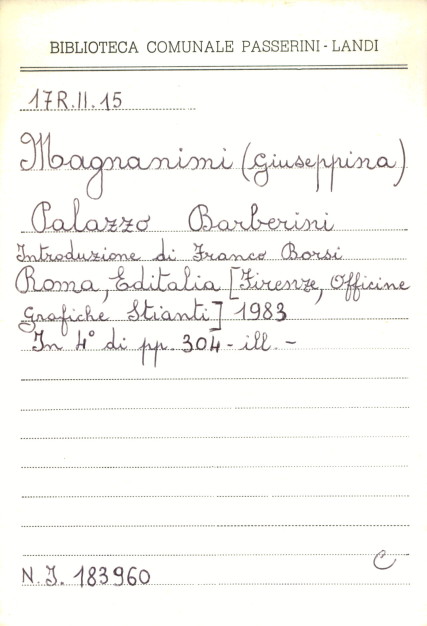 BIBLIOTECA COMUNALE PASSERINI - LANDI
17R.II.15
Magnanimi (Giuseppina)
Palazzo Barberini
Introduzione di Franco Borsi
Roma, Editalia [Firenze, Officine
Grafiche Stianti] 1983
In 4° di pp. 304 - ill. -
C
N. I. 183960